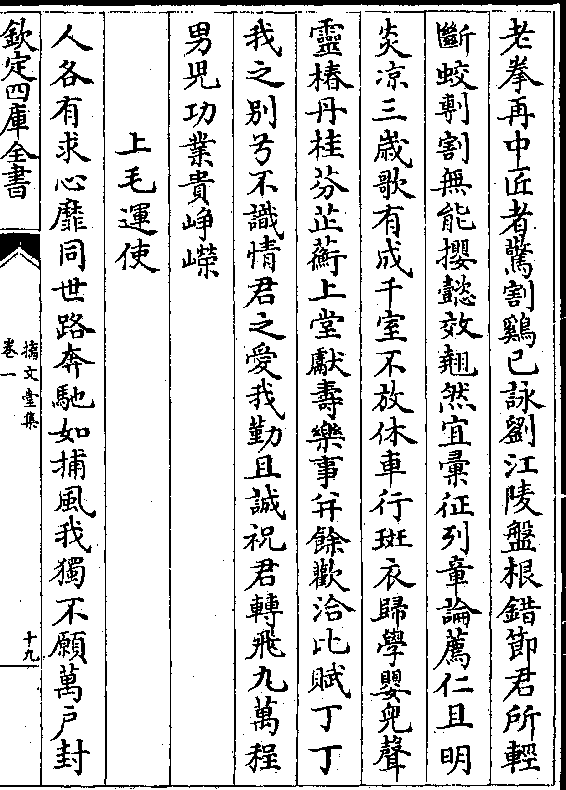 老拳再中匠者驚割鷄已詠劉江陵盤根錯節君所輕
斷蛟剸割無能攖懿效翹然宜彙征列章論薦仁且明
炎凉三歲歌有成千室不放休車行斑衣歸學嬰兒聲
靈椿丹桂芬芷蘅上堂獻壽樂事并餘歡洽比賦丁丁
我之别兮不識情君之愛我勤且誠祝君轉飛九萬程
男兒功業貴崢嶸
上毛運使
人各有求心靡同世路奔馳如捕風我獨不願萬戶封
欽定四庫全書
摛文堂集
卷一
十九